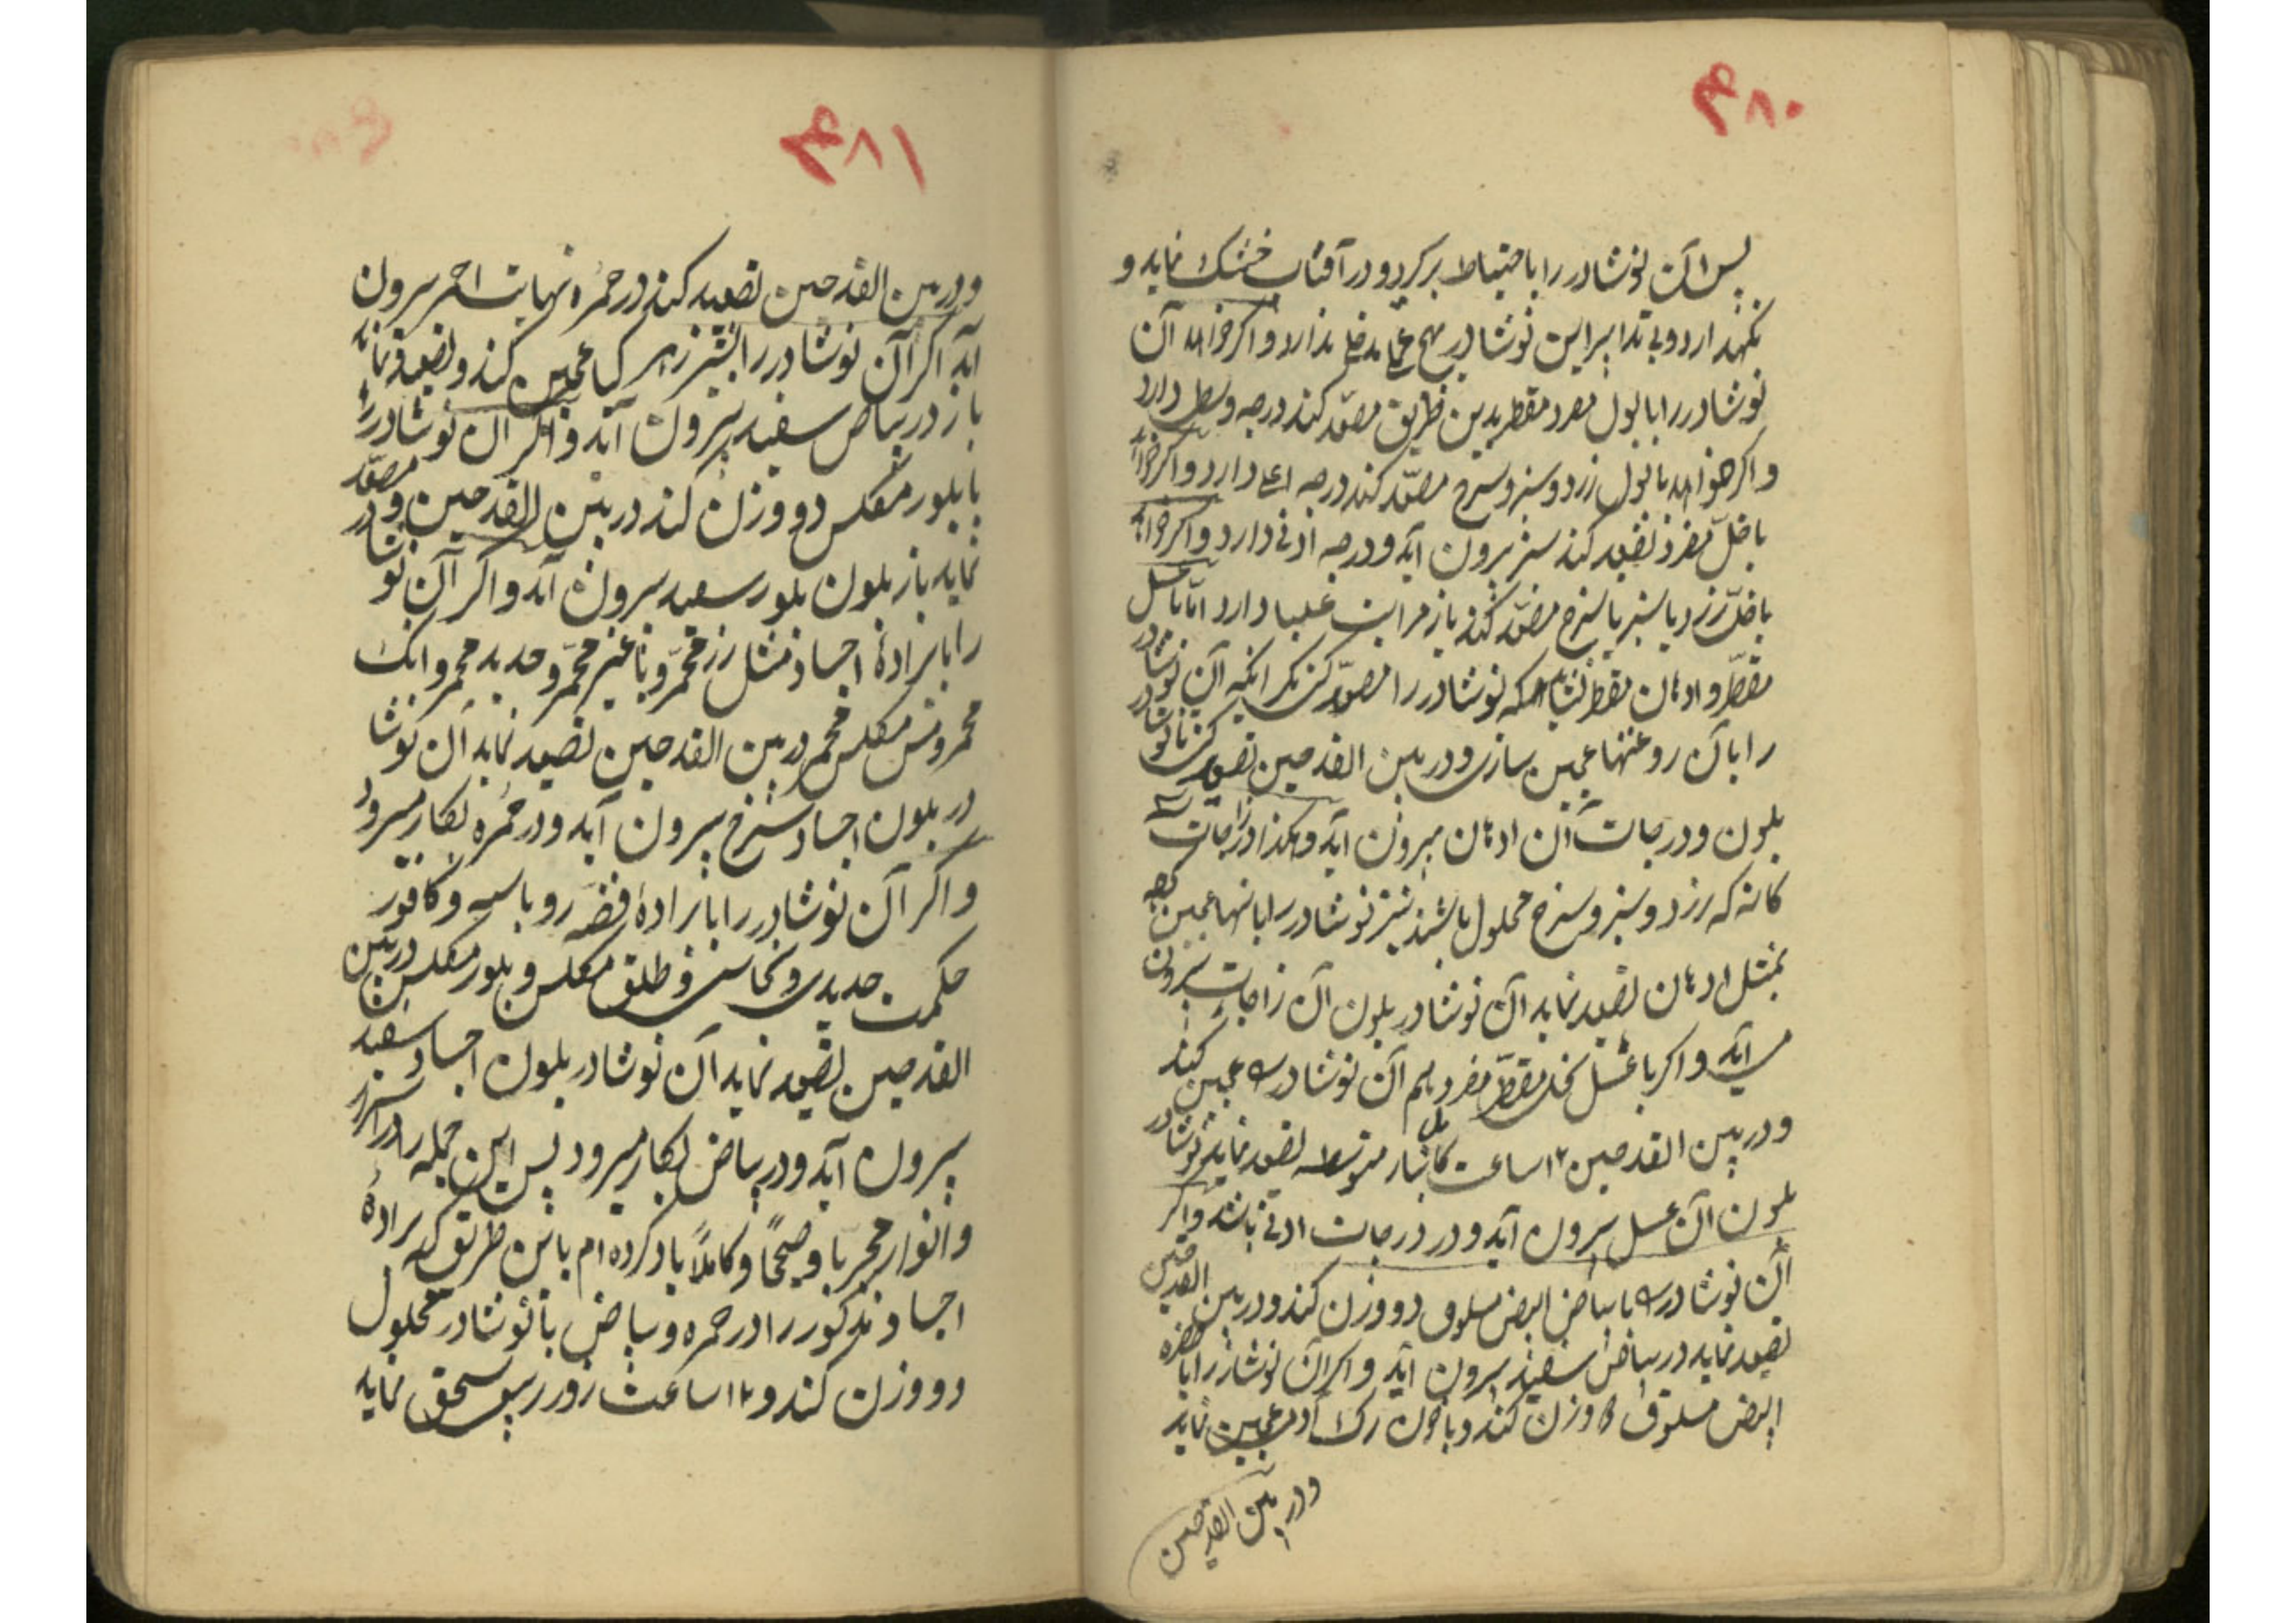 ۴۸۰
پس آن نوشادر را باحتیاط برکیرد و در آفتاب خشک نماید و
نکهدارد و بی تدابیر این نوشادر بهیچ عمل مدخل ندارد و اکر خواهد آن
نوشادر را با بول مفرد مقطر بدین طریق مصعّد کند درجه وسطی دارد
و اکر خواهد با بول زرد و سبز و سرخ مصعّد کند درجه اعلی دارد و اکر خواهد
با خلّ مفرد تصعید کند سبز برون آید و درجه ادنی دارد و اکر خواهد
با خلّ زرد یا سبز یا سرخ مصعّد کند باز مراتب علیا دارد امّا با عسل
مقطّر و ادهان مقطر نشاید که نوشادر را مصعّد کنی مکر انکه آن نوشادر
را با آن روغنها عجین سازی و در بین القدحین تصعید کنی تا نوشادر
بلون و درجات آن ادهان بیرون آید و هکذا در زاجات
کانه که زرد و سبز و سرخ محلول باشند نیز نوشادر را بانها عجین کرده
بمثل ادهان تصعید نماید آن نوشادر بلون آن زاجات بیرون
می آید و اکر با عسل نحل مقطّر مفرد هم آن نوشادر را عجین کند
و در بین القدحین ۱۲ ساعت کامل بنار متوسطه تصعید نماید نوشادر
بلون آن عسل برون آید و در درجات ادنی باشد و اکر
آن نوشادر را با بیاض البیض مسلوق دو وزن کند و در بین القدحین
تصعید نماید در بیاض سفید بیرون آید و اکر آن نوشادر را با صفره
البیض مسلوق وزن کند و با خون رک آدم عجین نماید
و در بین القدحین
۴۸۱
و در بین القدحین تصعید کند در حمره نهایت احمر برون
آید اکر آن نوشادر را بشیر زهر کیا عجین کند و تصعید نماید
باز در بیاض سفید بیرون آید و اکر آن نوشادر را
با بلور مکلس دو وزن کند در بین القدحین و مصعّد
نماید باز بلون بلور سفید برون آید و اکر آن نوشادر
را با برادهٔ اجساد مثل زر محمّر و یا غیر محمّر و حدید محمر و انک
محمر و مس مکلس محمر در بین القدحین تصعید نماید آن نوشا
در بلون اجساد سرخ بیرون آید و در حمره بکار میرود
و اکر آن نوشادر را با برادهٔ فضّه روباسیه و کافور
حکمت حدیدی و نحاسی و طلق مکلس و بلور مکلس در بین
القدحین تصعید نماید آن نوشادر بلون اجساد سفید
بیرون آید و در بیاض بکار میرود پس این جمله را در اسرار
و انوار مجربا و صحیحًا و کاملاً یاد کرده ام باین طریق که برادهٔ
اجساد مذکور را در حمره و بیاض با نوشادر محلول
دو وزن کند و ۱۲ ساعت روز ریس سحق نماید